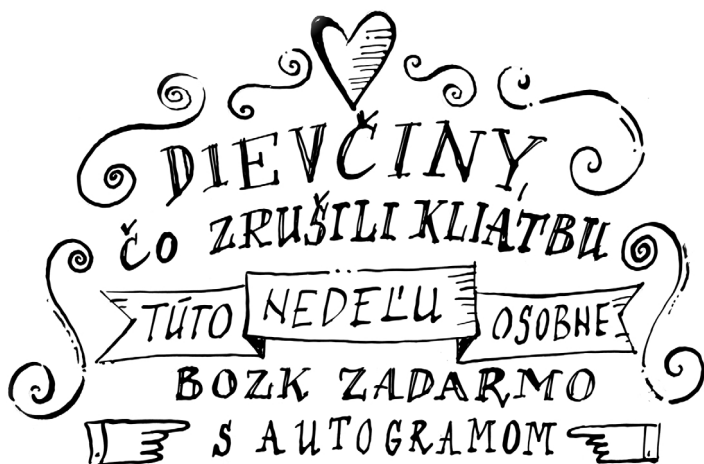 DIEVČINY,
ČO ZRUŠILI KLIATBU
TÚTO NEDEĽU OSOBNE
BOZK ZADARMO
S AUTOGRAMOM